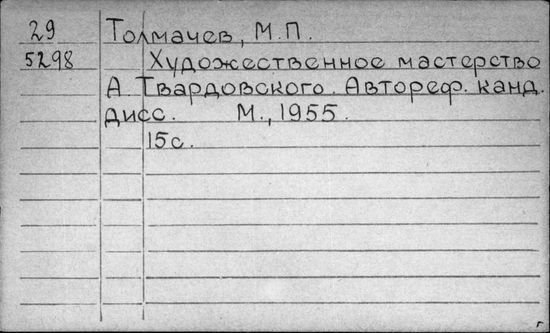 29 Толмачев, М.П.
5298 Художественное мастерство
А. Твардовского. Автореф. канд.
дисс. М., 1955.
15с.